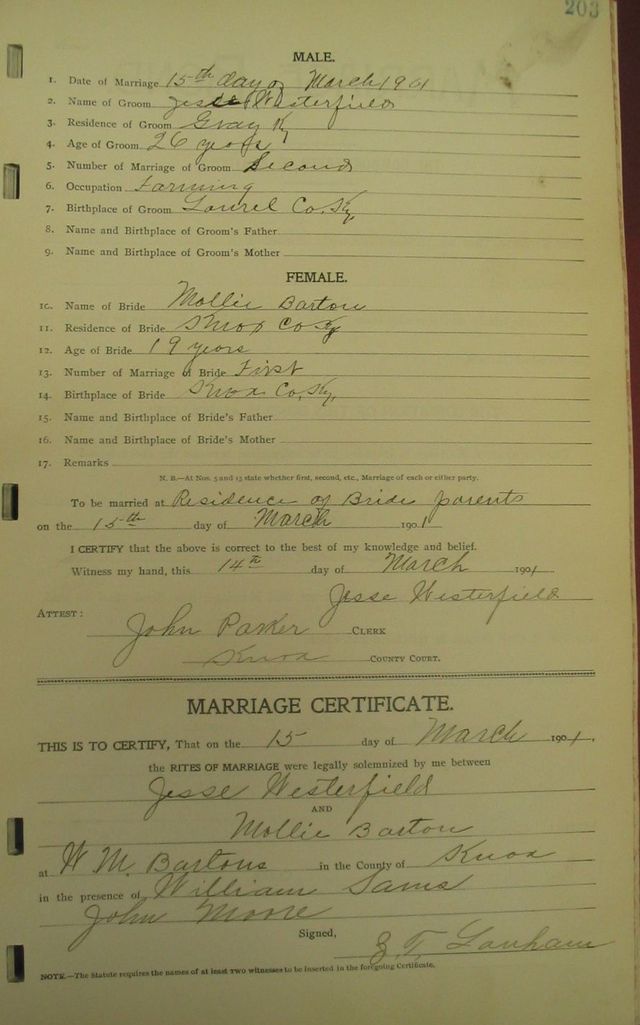 203
MALE.
1. Date of Marriage 15th day of March 1901
2. Name of Groom Jesse Westerfield
3. Residence of Groom Gray Ky
4. Age of Groom 26 years
5. Number of Marriage of Groom Second
6. Occupation Farming
7. Birthplace of Groom Laurel Co. Ky,
8. Name and Birthplace of Groom's Father
9. Name and Birthplace of Groom's Mother
FEMALE.
10. Name of Bride Mollie Barton
11. Residence of Bride Knox Co Ky
12. Age of Bride 19 years
13. Number of Marriage of Bride First
14. Birthplace of Bride Knox Co, Ky,
15. Name and Birthplace of Bride's Father
16. Name and Birthplace of Bride's Mother
17. Remarks
N. B.—At Nos. 5 and 13 state whether first, second, etc., Marriage of each or either party.
To be married at Residence of Bride parents
on the 15th day of March 1901
I CERTIFY that the above is correct to the best of my knowledge and belief.
Witness my hand, this 14th day of March 1901
Jesse Westerfield
ATTEST:
John Parker CLERK
Knox COUNTY COURT.
MARRIAGE CERTIFICATE.
THIS IS TO CERTIFY, That on the 15 day of March 1901.
the RITES OF MARRIAGE were legally solemnized by me between
Jesse Westerfield
AND
Mollie Barton
at W M. Bartons in the County of Knox
in the presence of William Sams
John Moore
Signed,
G. T. Lanham
NOTE.—The Statute requires the names of at least two witnesses to be inserted in the foregoing Certificate.